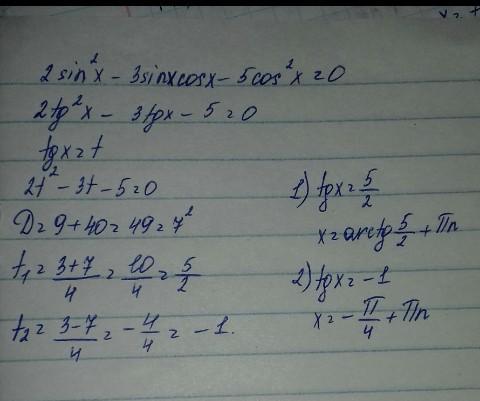 2sin²x - 3sinxcosx - 5cos²x = 0
2tg²x - 3tgx - 5 = 0
tgx = t
2t² - 3t - 5 = 0
D = 9 + 40 = 49 = 7²
t₁ = (3+7)/4 = 10/4 = 5/2
t₂ = (3-7)/4 = -4/4 = -1.
1) tgx = 5/2
x = arctg 5/2 + πn
2) tgx = -1
x = -π/4 + πn